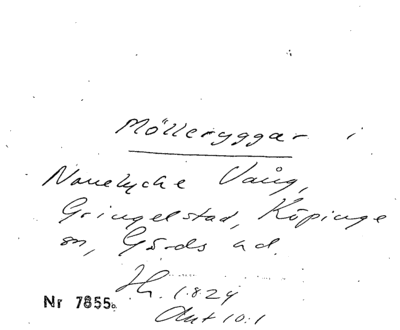 Mölleryggar i
Nonelycke Vång,
Gringelstad, Köpinge
sn, Gärds hd.
Jh. 1824
Akt 10:1
Nr 7855b